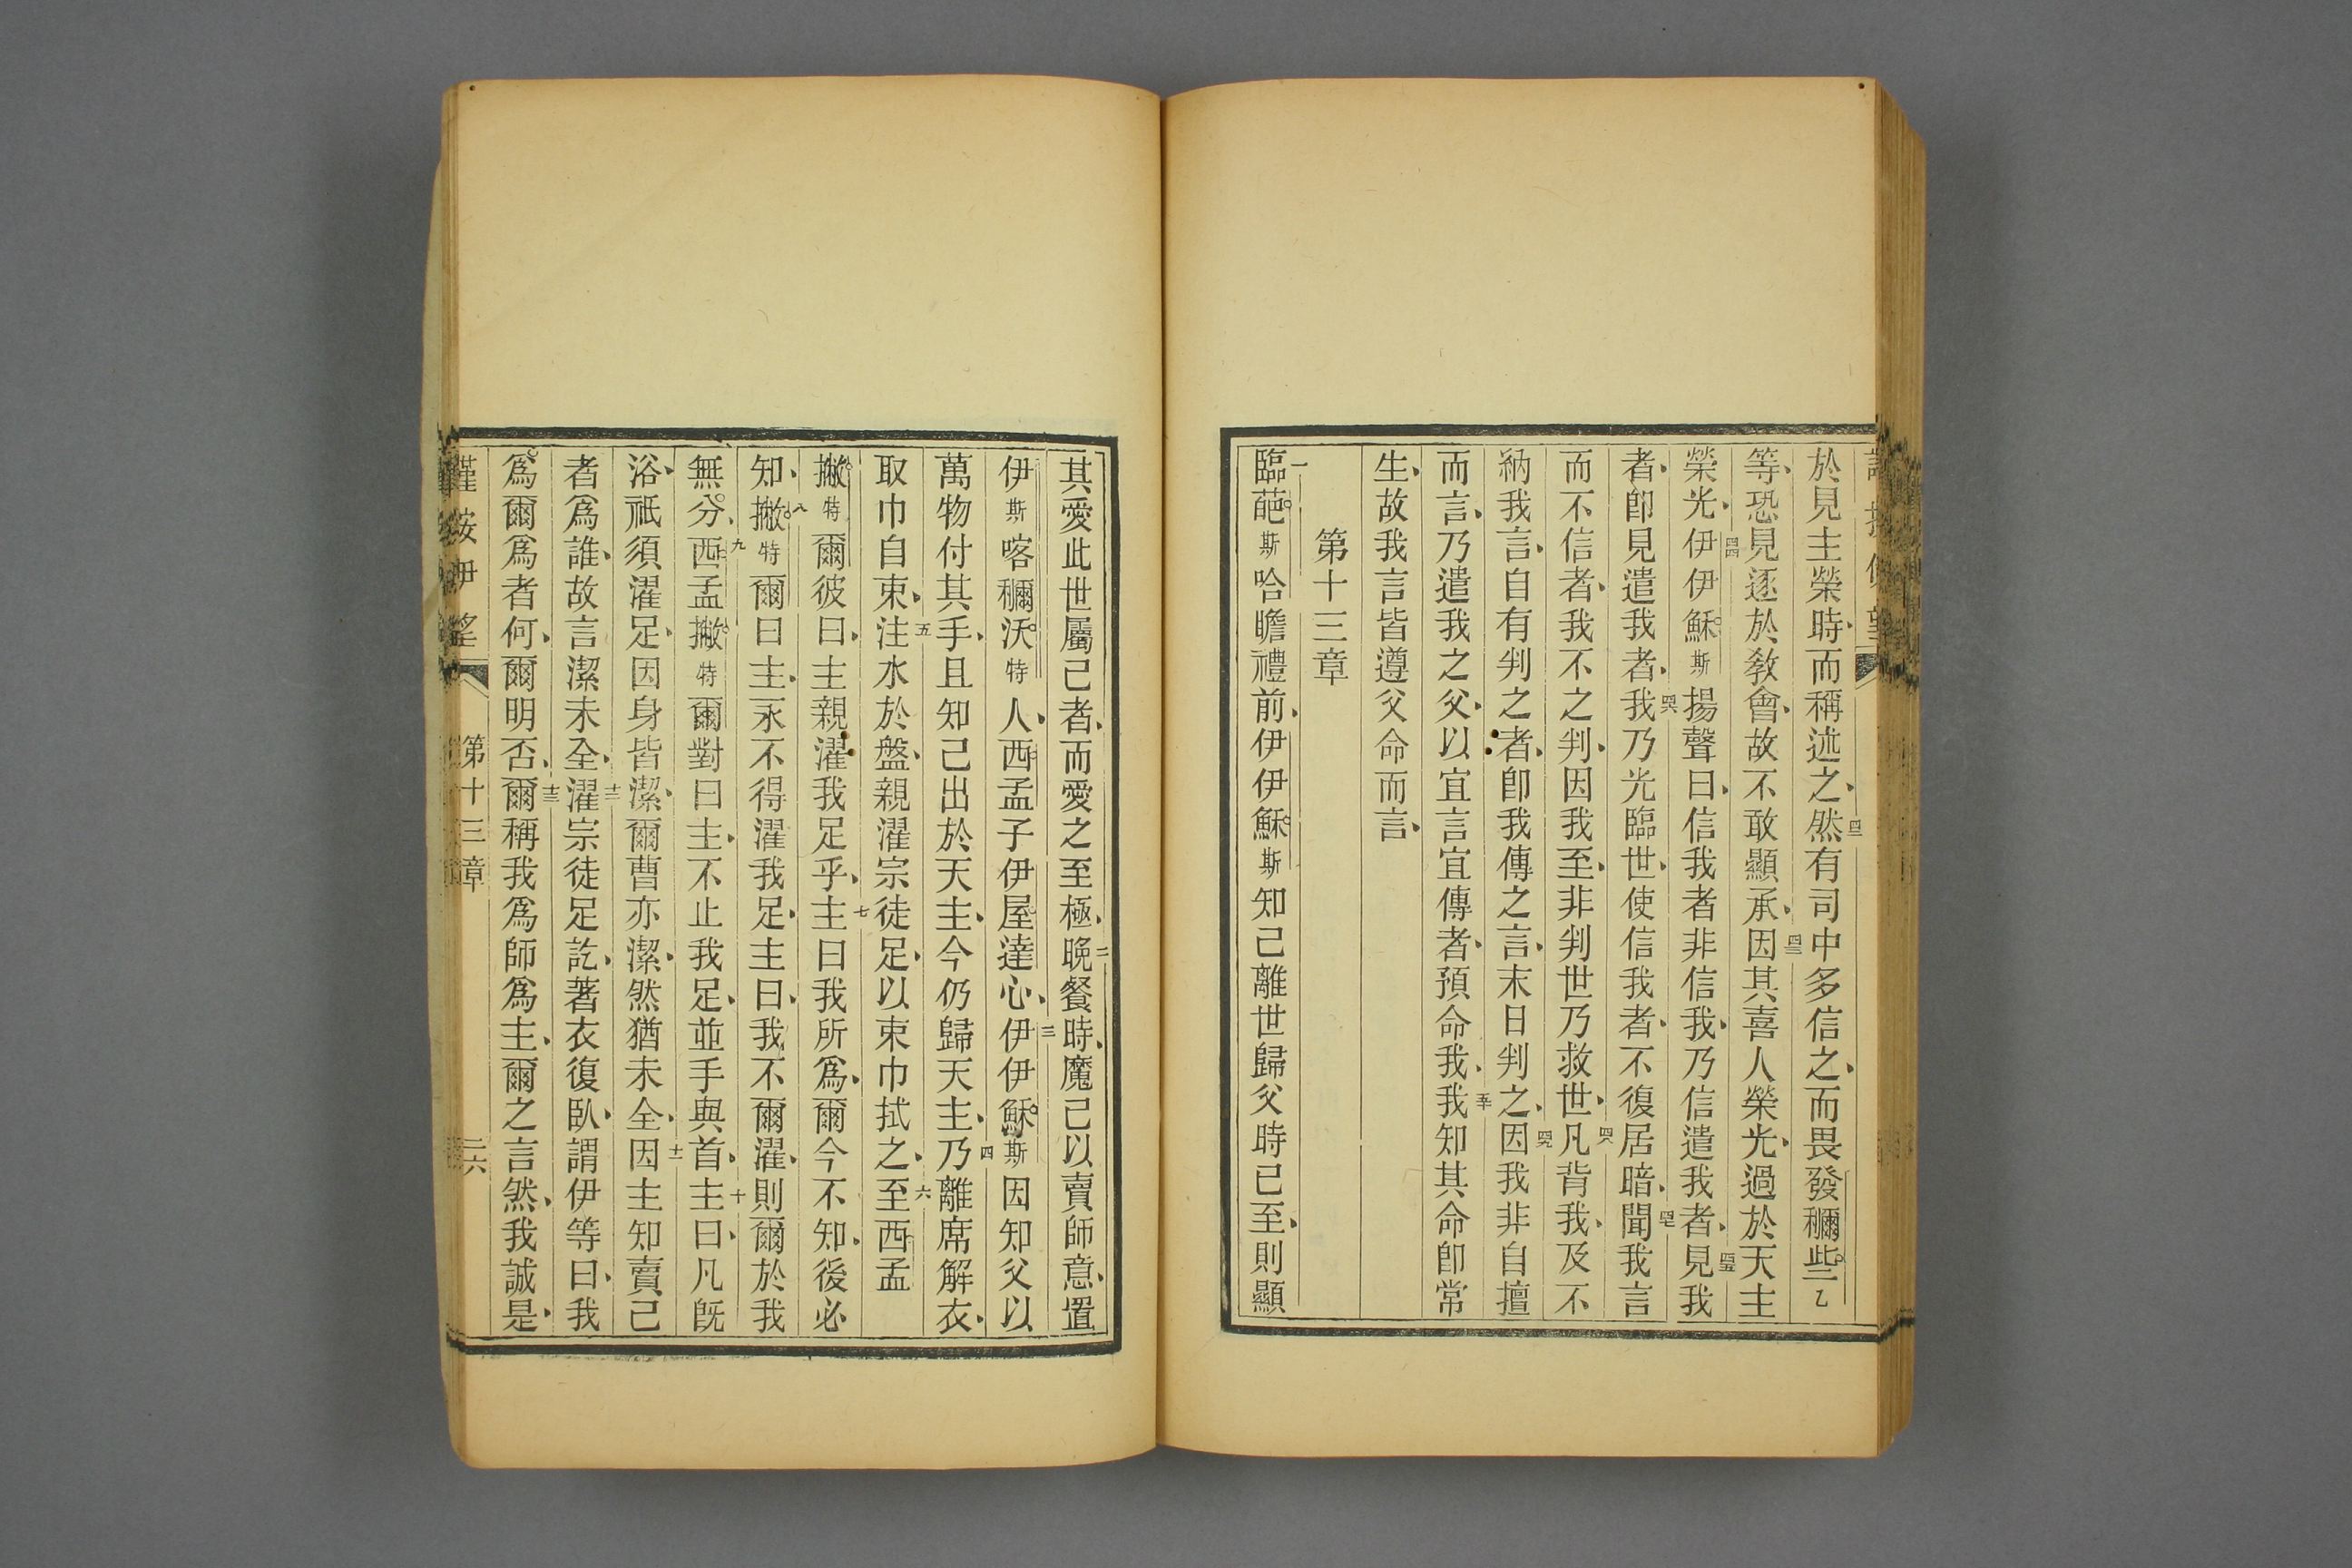 於見主榮時、而稱述之、四二然有司中多信之、而畏發穪些乙
等、恐見逐於敎會、故不敢顯承、四三因其喜人榮光、過於天主
榮光、四四伊伊穌斯揚聲曰、信我者非信我、乃信遣我者、四五見我
者、卽見遣我者、四六我乃光臨世、使信我者、不復居暗、四七聞我言
而不信者、我不之判、因我至、非判世乃救世、四八凡背我、及不
納我言、自有判之者、卽我傳之言、末日判之、四九因我非自擅
而言、乃遣我之父、以宜言宜傳者、預命我、五十我知其命卽常
生、故我言皆遵父命而言、
第十三章
一臨葩斯哈瞻禮前、伊伊穌斯知己離世歸父時已至、則顯
其愛此世屬己者、而愛之至極、二晚餐時、魔已以賣師意、置
伊斯喀穪沃特人、西孟子伊屋達心、三伊伊穌斯因知父以
萬物付其手、且知己出於天主、今仍歸天主、四乃離席解衣、
取巾自束、五注水於盤、親濯宗徒足、以束巾拭之、六至西孟
撇特爾彼曰、主親濯我足乎、七主曰我所爲、爾今不知、後必
知、八撇特爾曰主、永不得濯我足、主曰、我不爾濯、則爾於我
無分、九西孟撇特爾對曰主、不止我足、並手與首、十主曰、凡旣
浴、祇須濯足、因身皆潔、爾曹亦潔、然猶未全、十一因主知賣己
者爲誰、故言潔未全、十二濯宗徒足訖、著衣復臥、謂伊等曰、我
爲爾爲者何、爾明否、十三爾稱我爲師爲主、爾之言然、我誠是、
第十三章
二六